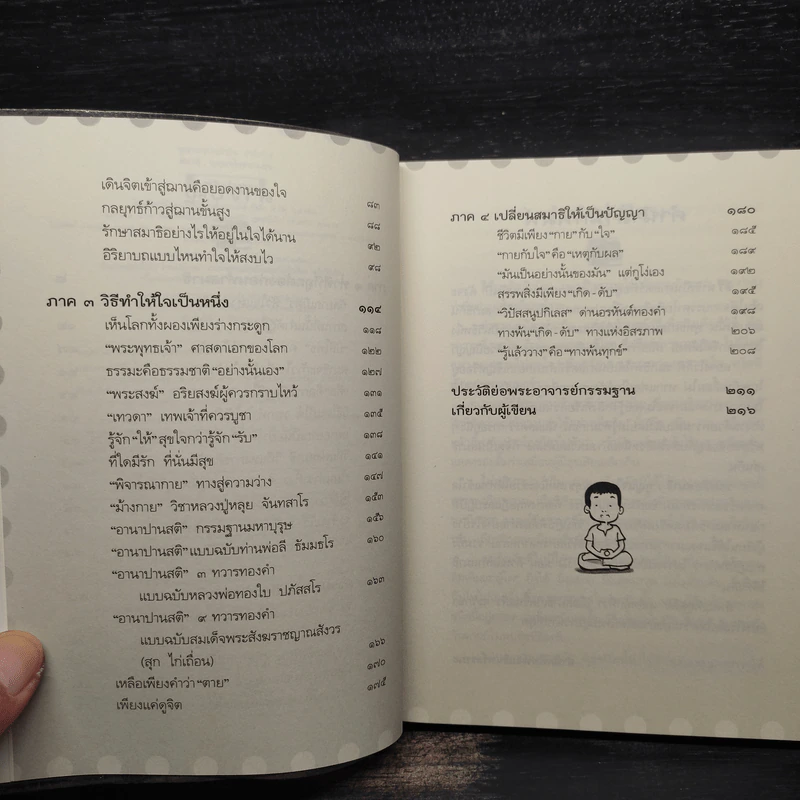 เดินจิตเข้าสู่ฌานคือยอดงานของใจ ๘๓
กลยุทธ์ก้าวสู่ฌานขั้นสูง ๘๘
รักษาสมาธิอย่างไรให้อยู่ในใจได้นาน ๙๒
อิริยาบถแบบไหนทำใจให้สงบไว ๙๘
ภาค ๓ วิธีทำให้ใจเป็นหนึ่ง ๑๑๔
เห็นโลกทั้งผองเพียงร่างกระดูก ๑๑๘
“พระพุทธเจ้า” ศาสดาเอกของโลก ๑๒๒
ธรรมะคือธรรมชาติ “อย่างนั้นเอง” ๑๒๗
“พระสงฆ์” อริยสงฆ์ผู้ควรกราบไหว้ ๑๓๑
“เทวดา” เทพเจ้าที่ควรบูชา ๑๓๕
รู้จัก “ให้” สุขใจกว่ารู้จัก “รับ” ๑๓๘
ที่ใดมีรัก ที่นั่นมีสุข ๑๔๑
“พิจารณากาย” ทางสู่ความว่าง ๑๔๗
“ม้างกาย” วิชาหลวงปู่หลุย จันทสาโร ๑๕๓
“อานาปานสติ” กรรมฐานมหาบุรุษ ๑๕๖
“อานาปานสติ” แบบฉบับท่านพ่อลี ธัมมธโร ๑๖๐
“อานาปานสติ” ๓ ทวารทองคำ
แบบฉบับหลวงพ่อทองใบ ปภัสสโร ๑๖๓
“อานาปานสติ” ๙ ทวารทองคำ
แบบฉบับสมเด็จพระสังฆราชญาณสังวร
(สุก ไก่เถื่อน) ๑๖๖
เหลือเพียงคำว่า “ตาย” ๑๗๐
เพียงแค่ดูจิต ๑๗๕
ภาค ๔ เปลี่ยนสมาธิให้เป็นปัญญา ๑๘๐
ชีวิตมีเพียง “กาย” กับ “ใจ” ๑๘๕
“กายกับใจ” คือ “เหตุกับผล” ๑๘๙
“มันเป็นอย่างนั้นของมัน” แต่กูโง่เอง ๑๙๒
สรรพสิ่งมีเพียง “เกิด - ดับ” ๑๙๕
“วิปัสสนูปกิเลส” ด่านอรหันต์ทองคำ ๑๙๘
ทางพ้น “เกิด - ดับ” ทางแห่งอิสรภาพ ๒๐๖
“รู้แล้ววาง” คือ “ทางพ้นทุกข์” ๒๐๘
ประวัติย่อพระอาจารย์กรรมฐาน ๒๑๑
เกี่ยวกับผู้เขียน ๒๑๖